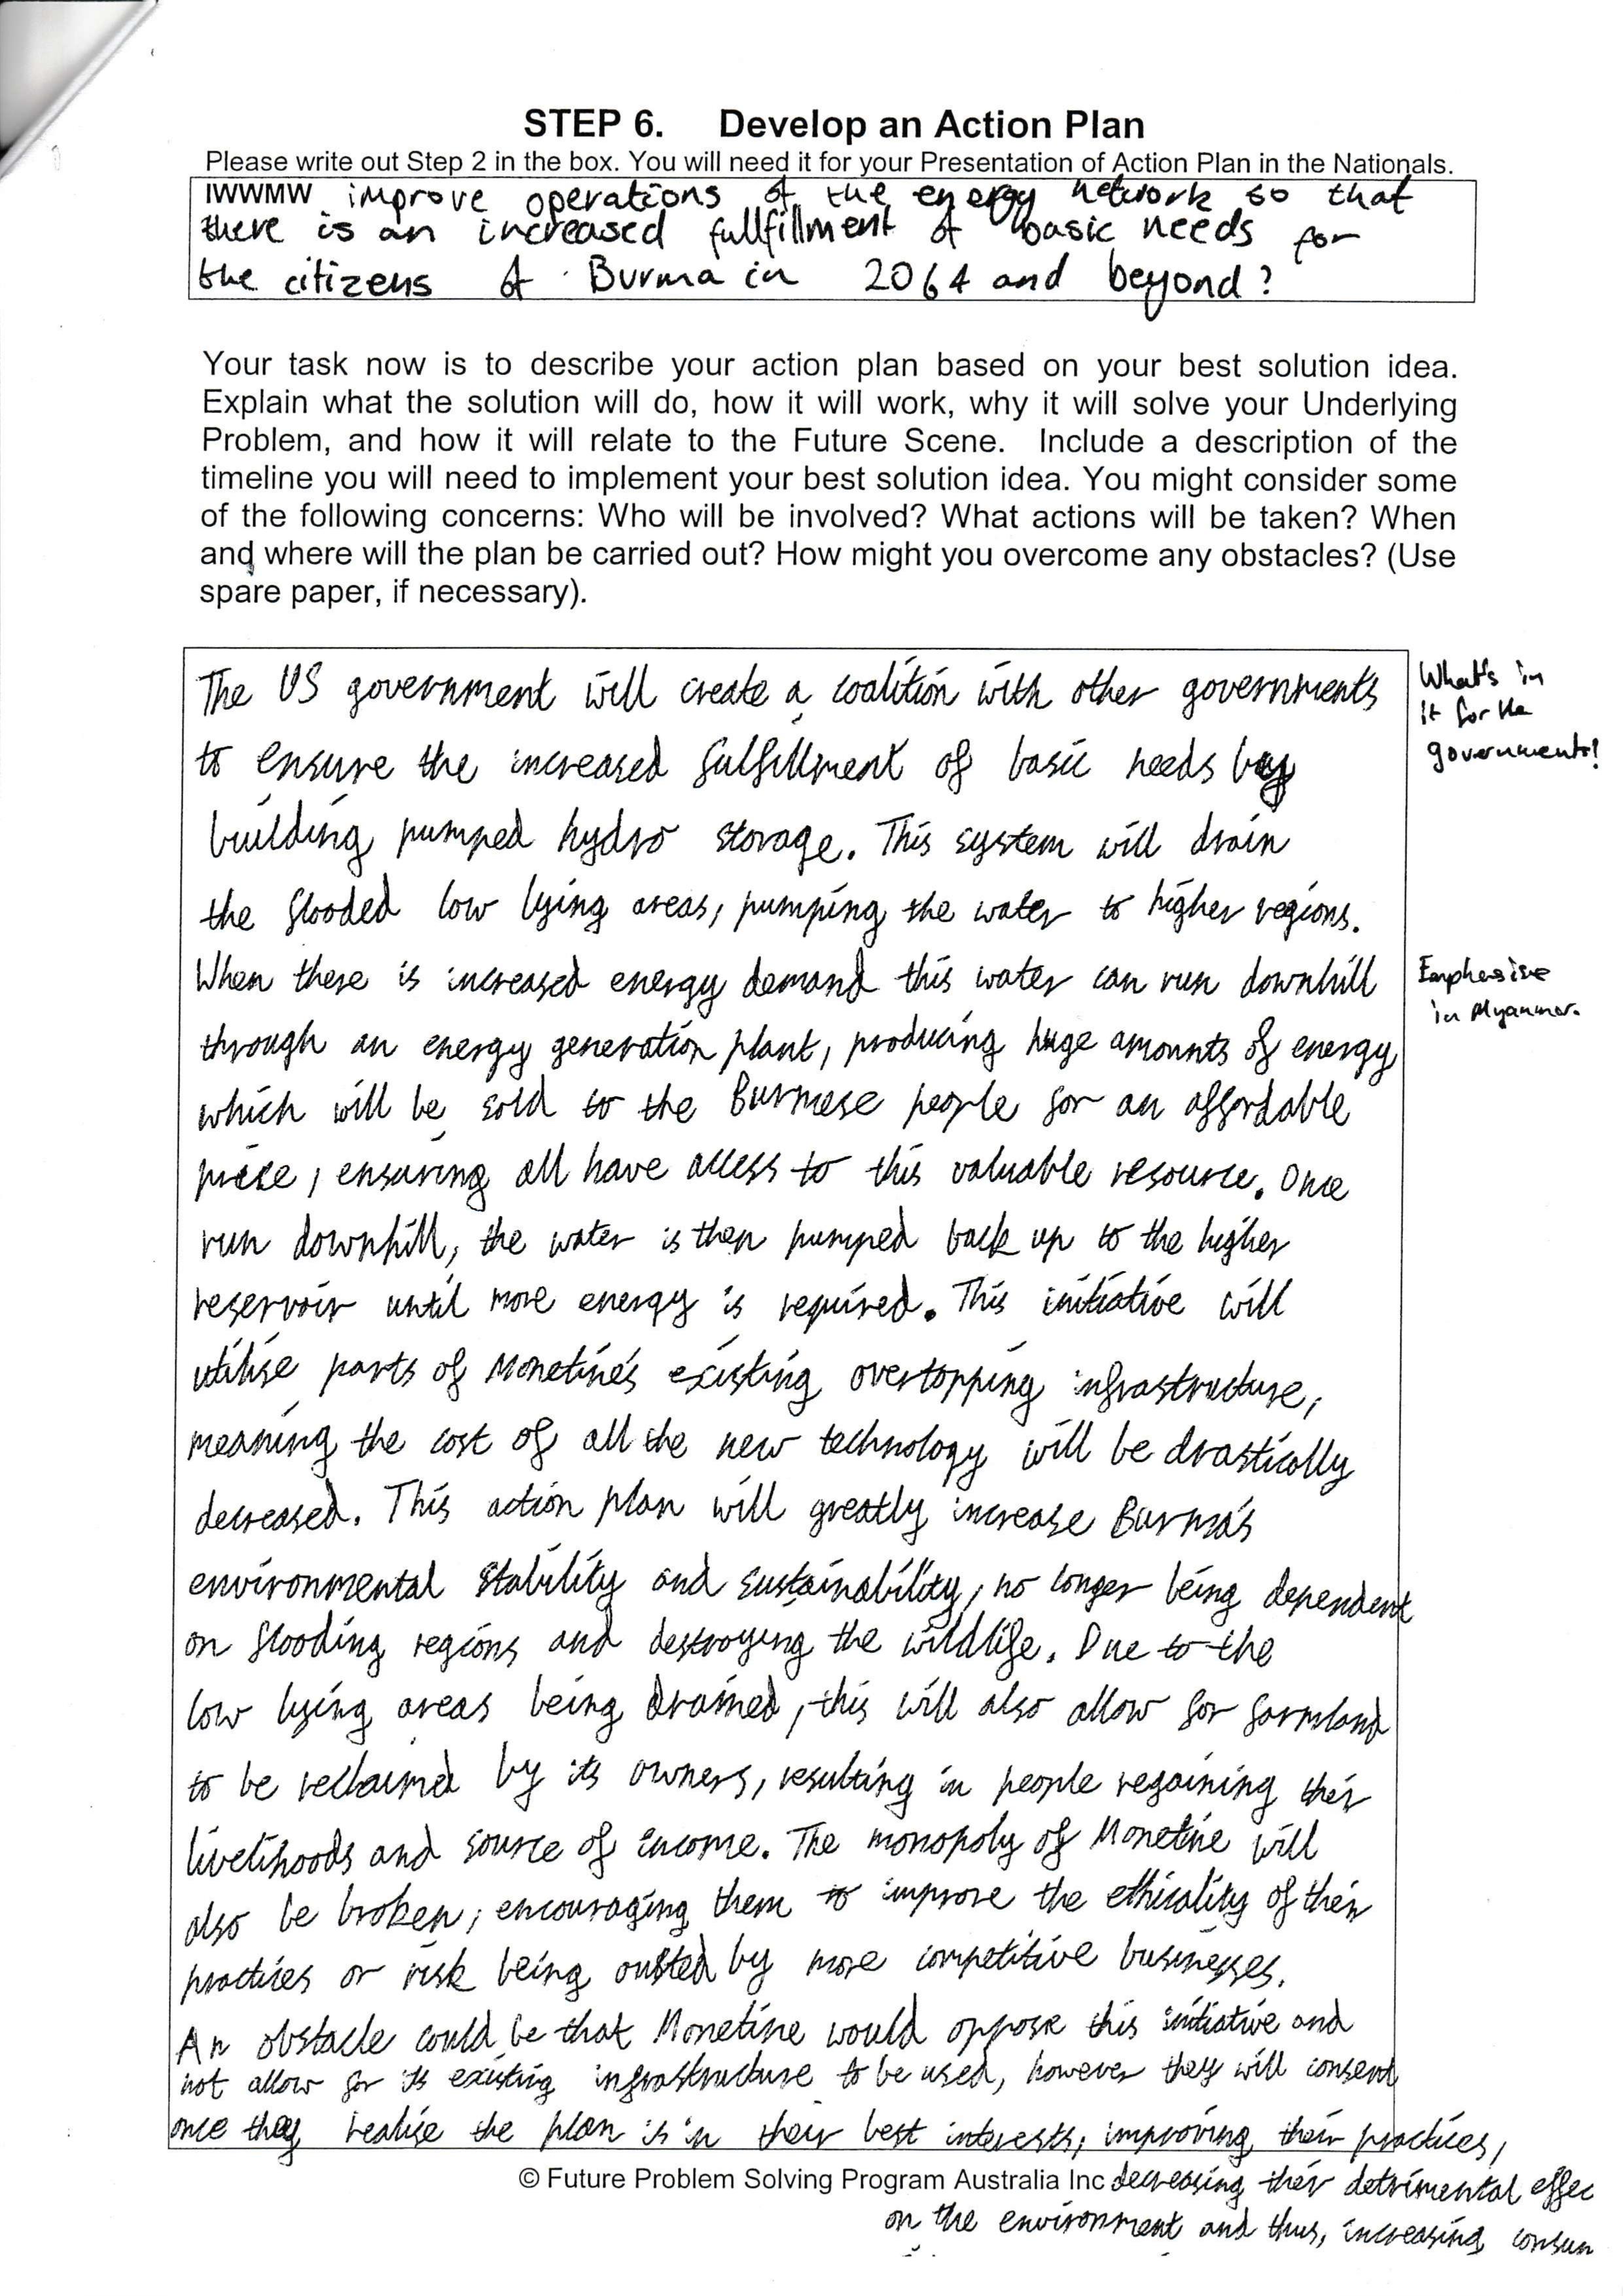 STEP 6. Develop an Action Plan
Please write out Step 2 in the box. You will need it for your Presentation of Action Plan in the Nationals.
IWWMW improve operations of the energy network so that
there is an increased fullfillment of basic needs for
the citizens of Burma in 2064 and beyond?
Your task now is to describe your action plan based on your best solution idea.
Explain what the solution will do, how it will work, why it will solve your Underlying
Problem, and how it will relate to the Future Scene. Include a description of the
timeline you will need to implement your best solution idea. You might consider some
of the following concerns: Who will be involved? What actions will be taken? When
and where will the plan be carried out? How might you overcome any obstacles? (Use
spare paper, if necessary).
The US government will create a coalition with other governments
to ensure the increased fulfillment of basic needs by
building pumped hydro storage. This system will drain
the flooded low lying areas, pumping the water to higher regions.
When there is increased energy demand this water can run downhill
through an energy generation plant, producing huge amounts of energy
which will be sold to the Burmese people for an affordable
price, ensuring all have access to this valuable resource. Once
run downhill, the water is then pumped back up to the higher
reservoir until more energy is required. This initiative will
utilise parts of Monetine's existing overtopping infrastructure,
meaning the cost of all the new technology will be drastically
decreased. This action plan will greatly increase Burma's
environmental stability and sustainability, no longer being dependent
on flooding regions and destroying the wildlife. Due to the
low lying areas being drained, this will also allow for farmland
to be reclaimed by its owners, resulting in people regaining their
livelihoods and source of income. The monopoly of Monetine will
also be broken, encouraging them to improve the ethicality of their
practices or risk being ousted by more competitive businesses.
An obstacle could be that Monetine would oppose this initiative and
not allow for its existing infrastructure to be used, however they will consent
once they realise the plan is in their best interests, improving their practices,
© Future Problem Solving Program Australia Inc decreasing their detrimental effec
on the environment and thus, increasing consum
What's in
it for the
governments!
Emphasise
in Myanmar.